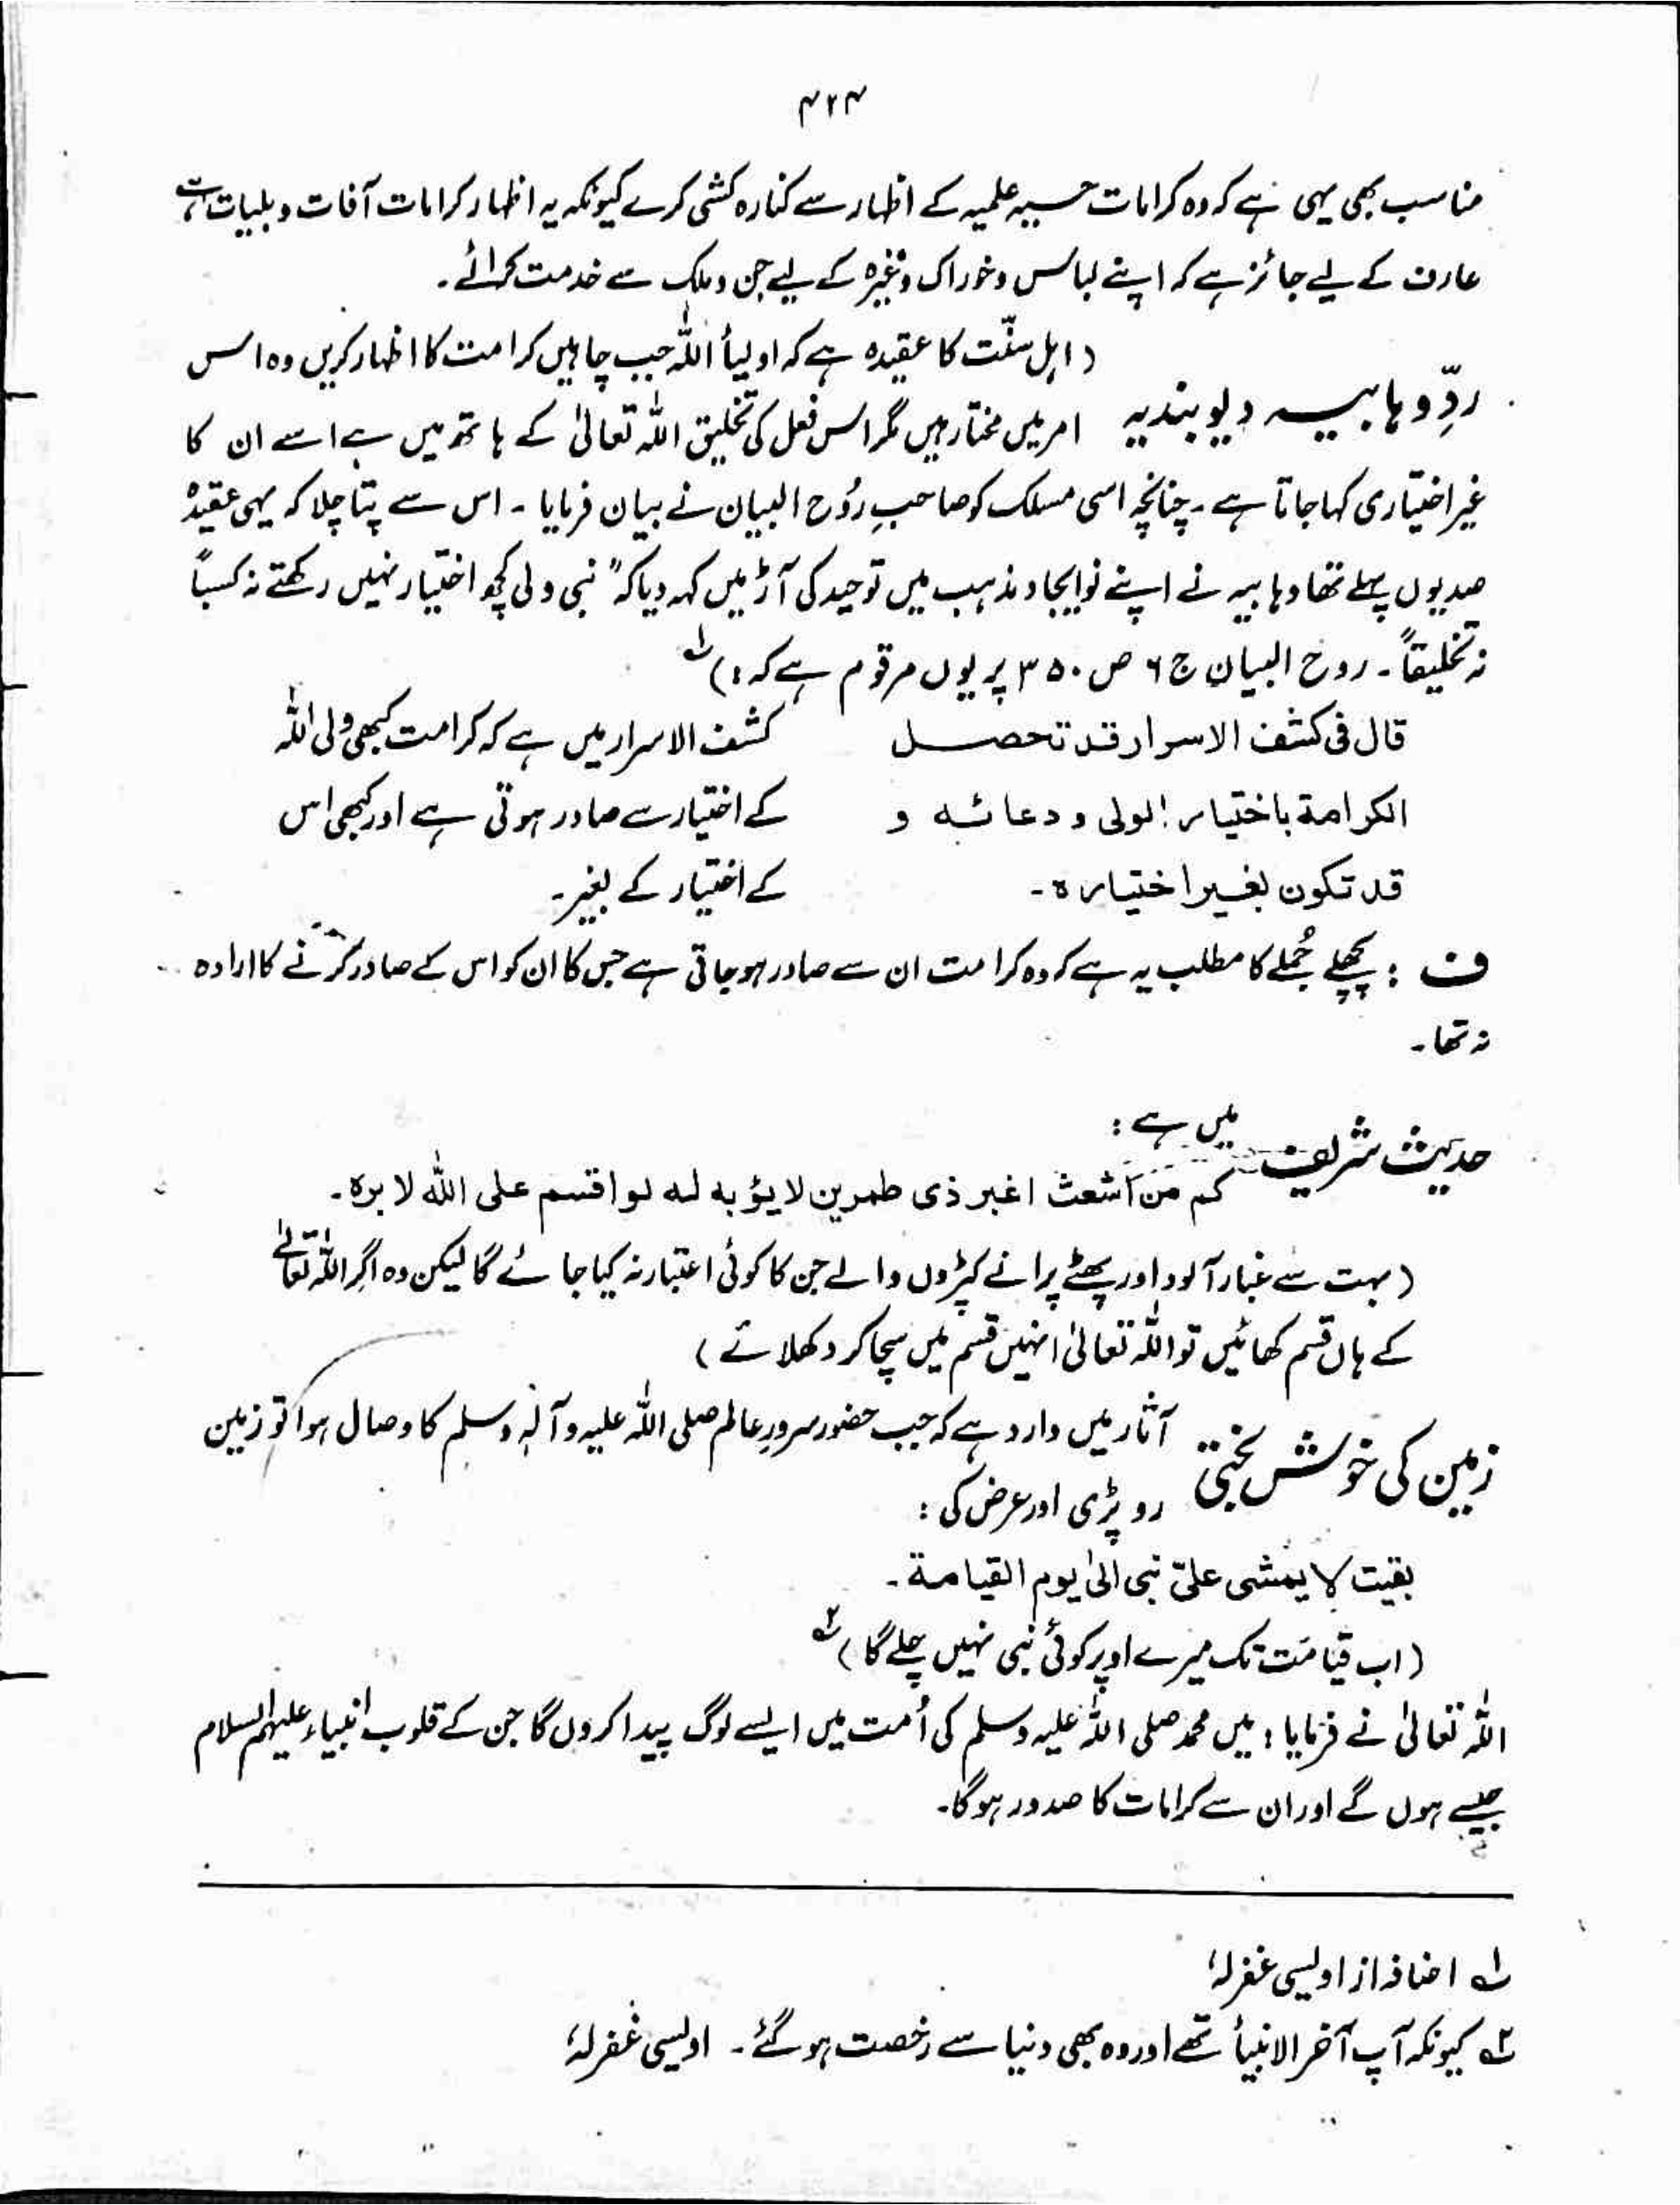 ۴۲۴
مناسب بھی یہی ہے کہ وہ کرامات حسیہ علمیہ کے اظہار سے کنارہ کشی کرے کیونکہ یہ اظہار کرامات آفات و بلیات ہے
عارف کے لیے جائز ہے کہ اپنے لباس و خوراک وغیرہ کے لیے جن و ملک سے خدمت کرائے۔
ردِّ وہابیہ دیوبندیہ
(اہل سنّت کا عقیدہ ہے کہ اولیأ اللہ جب چاہیں کرامت کا اظہار کریں وہ اس
امر میں مختار ہیں مگر اس فعل کی تخلیق اللہ تعالیٰ کے ہاتھ میں ہے اسے ان کا
غیر اختیاری کہا جاتا ہے۔ چنانچہ اسی مسلک کو صاحبِ رُوح البیان نے بیان فرمایا۔ اس سے پتا چلا کہ یہی عقیدہ
صدیوں پہلے تھا وہابیہ نے اپنے نوایجاد مذہب میں توحید کی آڑ میں کہہ دیا کہ "نبی ولی کچھ اختیار نہیں رکھتے نہ کسباً
نہ تخلیقاً۔ روح البیان ج ۶ ص ۳۵۰ پر یوں مرقوم ہے کہ:) ؂۱
قال فی کشف الاسرار قد تحصل
الکرامة باختیار الولی و دعائہ و
قد تکون بغیر اختیارہ۔
کشف الاسرار میں ہے کہ کرامت کبھی ولی اللہ
کے اختیار سے صادر ہوتی ہے اور کبھی اس
کے اختیار کے بغیر۔
ف : پچھلے جُملے کا مطلب یہ ہے کہ وہ کرامت ان سے صادر ہو جاتی ہے جس کا ان کو اس کے صادر کرنے کا ارادہ
نہ تھا۔
حدیث شریف میں ہے :
کم من اشعث اغبر ذی طمرین لا یؤبہ لہ لو اقسم علی اللہ لابرہ۔
(بہت سے غبار آلود اور پھٹے پرانے کپڑوں والے جن کا کوئی اعتبار نہ کیا جائے گا لیکن وہ اگر اللہ تعالےٰ
کے ہاں قسم کھائیں تو اللہ تعالیٰ انہیں قسم میں سچا کر دکھلائے)
زمین کی خوش بختی
آثار میں وارد ہے کہ جب حضور سرورِ عالم صلی اللہ علیہ وآلہٖ وسلم کا وصال ہوا تو زمین
رو پڑی اور عرض کی :
بقیت لا یمشی علیّ نبی الیٰ یوم القیامة۔
(اب قیامت تک میرے اوپر کوئی نبی نہیں چلے گا) ؂۲
اللہ تعالیٰ نے فرمایا : میں محمد صلی اللہ علیہ وسلم کی اُمت میں ایسے لوگ پیدا کروں گا جن کے قلوب انبیاء علیہم السلام
جیسے ہوں گے اور ان سے کرامات کا صدور ہوگا۔
؂۱ اضافہ از اویسی غفرلہٗ
؂۲ کیونکہ آپ آخر الانبیأ تھے اور وہ بھی دنیا سے رخصت ہوگئے۔ اویسی غفرلہٗ